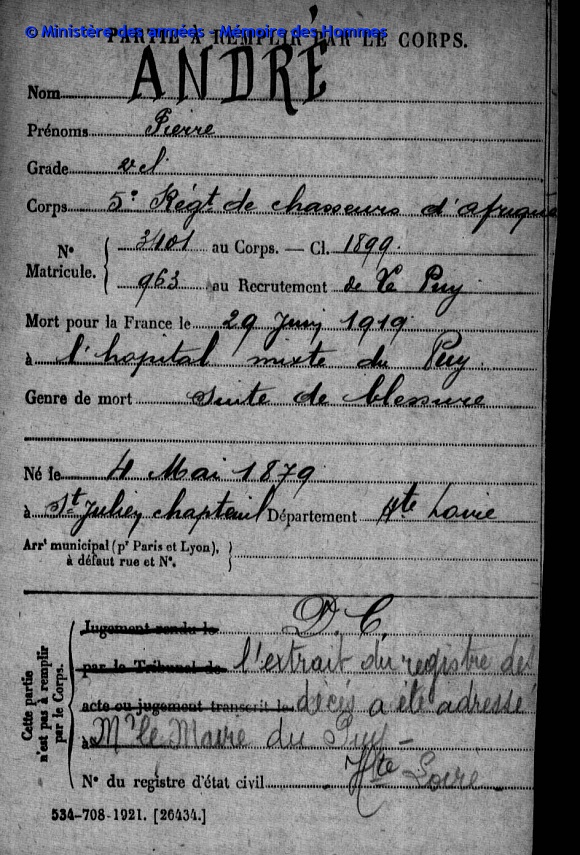 © Ministère des armées - Mémoire des Hommes
PARTIE À REMPLIR PAR LE CORPS.
Nom ANDRÉ
Prénoms Pierre
Grade
Corps 5e Régt de chasseurs d'afrique
N° Matricule. { 3401 au Corps. — Cl. 1899.
963 au Recrutement de Le Puy
Mort pour la France le 29 Juin 1919
à l'hopital mixte du Puy.
Genre de mort suite de blessure
Né le 4 Mai 1879
à St Julien chapteuil Département Hte Loire
Arrt municipal (pr Paris et Lyon), }
à défaut rue et N°.
Cette partie n'est pas à remplir par le Corps.
Jugement rendu le D. C.
par le Tribunal de l'extrait du registre des
acte ou jugement transcrit le décès a été adressé
à Mr le Maire du Puy -
Hte Loire -
N° du registre d'état civil
534-708-1921. [26434.]